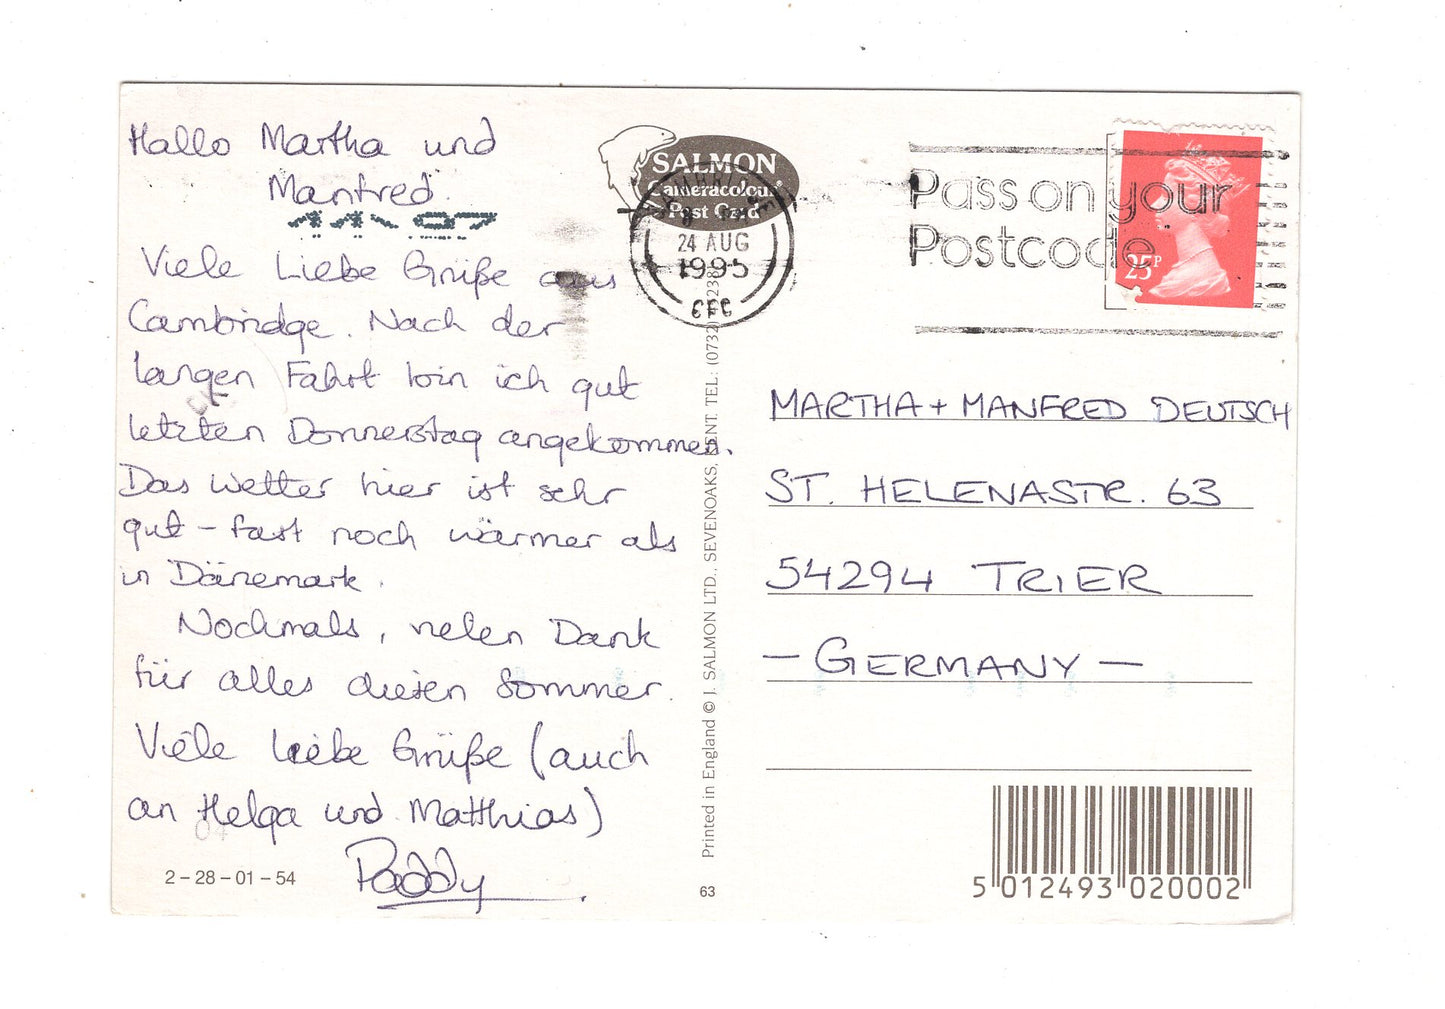 Hallo Martha und
Manfred.
Viele Liebe Grüße aus
Cambridge. Nach der
langen Fahrt bin ich gut
letzten Donnerstag angekommen.
Das Wetter hier ist sehr
gut – fast noch wärmer als
in Dänemark.
Nochmals, vielen Dank
für alles diesen Sommer.
Viele Liebe Grüße (auch
an Helga und Matthias)
Paddy
2 – 28 – 01 – 54
SALMON
Cameracolour
Post Card
24 AUG
1995
Pass on your
Postcode
25P
MARTHA + MANFRED DEUTSCH
ST. HELENASTR. 63
54294 TRIER
– GERMANY –
Printed in England © J. SALMON LTD., SEVENOAKS, KENT. TEL: (0732)
63
5 012493 020002